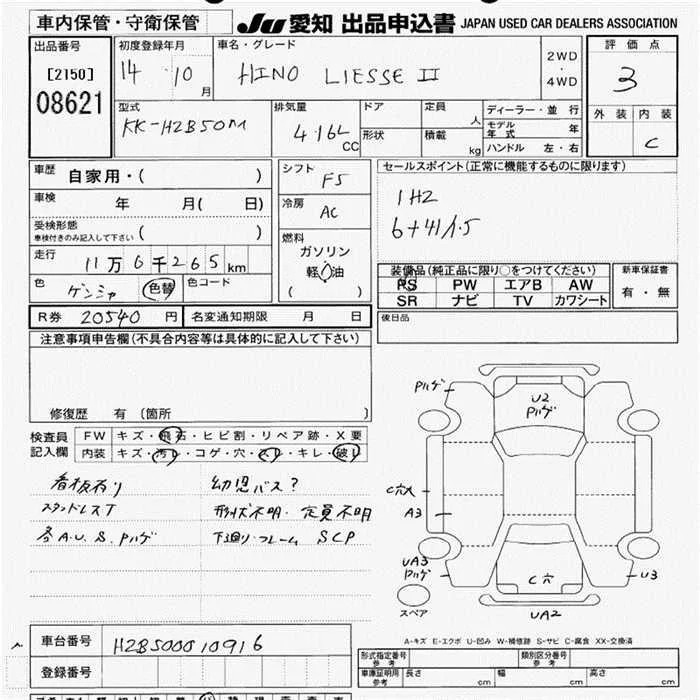 車内保管・守衛保管 JU 愛知 出品申込書 JAPAN USED CAR DEALERS ASSOCIATION
出品番号 初度登録年月 車名・グレード 評価点
[2150] 14 10 月 HINO LIESSE II 2WD・4WD 3
08621
型式 排気量 ドア 定員 人 ディーラー・並行 外装 内装
KK-HZB50M 4.16L CC 形状 積載 kg モデル年式 年 C
ハンドル 左・右
車歴 自家用・( ) シフト F5 セールスポイント(正常に機能するものに限ります)
車検 年 月( 日) 冷房 AC 1HZ
受検形態 車検付きのみ記入して下さい ( ) 燃料 6+41/1.5
走行 11万6千265km ガソリン
軽・油
( )
色 ゲンシャ 色替 色コード
装備品(純正品に限り○をつけてください) 新車保証書
PS PW エアB AW 有・無
SR ナビ TV カワシート
R券 20540 円 名変通知期限 月 日 後日品
注意事項申告欄(不具合内容等は具体的に記入して下さい)
修復歴 有 (箇所 )
検査員記入欄 FW キズ・飛石・ヒビ割・リペア跡・X要
内装 キズ・汚レ・コゲ・穴・スレ・キレ・破レ
看板有り 幼児バス?
スタッドレスT 形状不明・定員不明
各A.U.S.Pハゲ 下廻り・フレーム SCP
Pハゲ
U2
Pハゲ
C穴大
A3
UA3
Pハゲ
C穴
U3
スペア
UA2
A-キズ E-エクボ U-凹み W-補修跡 S-サビ C-腐食 XX-交換済
車台番号 HZB500010916
登録番号
形式指定番号 参考 類別区分番号 参考
車庫証明用 参考 長さ cm 幅 cm 高さ cm